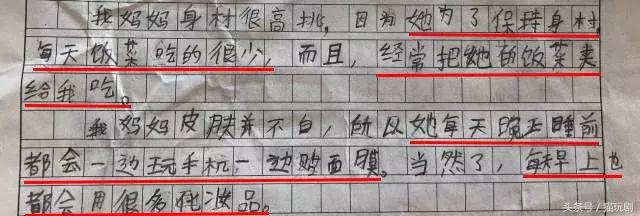 我妈妈身材很高挑，因为她为了保持身材，
每天饭菜吃的很少，而且，经常把她的饭菜夹
给我吃。
我妈妈皮肤并不白，所以她每天晚上睡前
都会一边玩手机，一边贴面膜。当然了，每天早上也
都会用很多化妆品。
头条号/猫玩剧